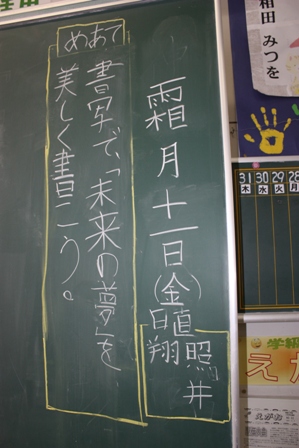 相田 みつを
霜月十一日(金)
日直 照井
翔
めあて
書写で、「未来の夢」を
美しく書こう。
31 30 29 28
木 水 火 月
学級
えが